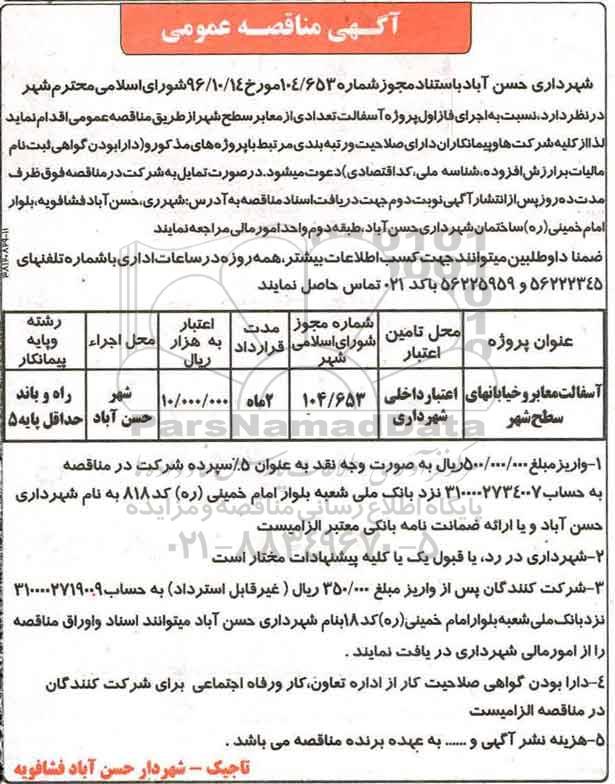 آگهی مناقصه عمومی
شهرداری حسن آباد باستناد مجوز شماره ۱۰۴/۶۵۳ مورخ ۹۶/۱۰/۱۴ شورای اسلامی محترم شهر
در نظر دارد، نسبت به اجرای فاز اول پروژه آسفالت تعدادی از معابر سطح شهر از طریق مناقصه عمومی اقدام نماید
لذا از کلیه شرکت ها و پیمانکاران دارای صلاحیت و رتبه بندی مرتبط با پروژه های مذکور و (دارا بودن گواهی ثبت نام
مالیات بر ارزش افزوده، شناسه ملی، کد اقتصادی) دعوت میشود. در صورت تمایل به شرکت در مناقصه فوق ظرف
مدت ده روز پس از انتشار آگهی نوبت دوم جهت دریافت اسناد مناقصه به آدرس: شهرری، حسن آباد فشافویه، بلوار
امام خمینی (ره) ساختمان شهرداری حسن آباد، طبقه دوم واحد امور مالی مراجعه نمایند
ضمنا داوطلبین میتوانند جهت کسب اطلاعات بیشتر، همه روزه در ساعات اداری با شماره تلفنهای
۵۶۲۲۲۳۴۵ و ۵۶۲۲۵۹۵۹ با کد ۰۲۱ تماس حاصل نمایند
عنوان پروژه | محل تامین اعتبار | شماره مجوز شورای اسلامی شهر | مدت قرارداد | اعتبار به هزار ریال | محل اجراء | رشته وپایه پیمانکار
آسفالت معابر و خیابانهای سطح شهر | اعتبار داخلی شهرداری | ۱۰۴/۶۵۳ | ۲ماه | ۱۰/۰۰۰/۰۰۰ | شهر حسن آباد | راه و باند حداقل پایه ۵
۱-واریز مبلغ ۵۰۰/۰۰۰/۰۰۰ریال به صورت وجه نقد به عنوان ۵٪ سپرده شرکت در مناقصه
به حساب ۳۱۰۰۰۰۲۷۳۴۰۰۷ نزد بانک ملی شعبه بلوار امام خمینی (ره) کد ۸۱۸ به نام شهرداری
حسن آباد و یا ارائه ضمانت نامه بانکی معتبر الزامیست
۲-شهرداری در رد، یا قبول یک یا کلیه پیشنهادات مختار است
۳-شرکت کنندگان پس از واریز مبلغ ۳۵۰/۰۰۰ ریال ( غیرقابل استرداد) به حساب ۳۱۰۰۰۰۲۷۱۹۰۰۹
نزد بانک ملی شعبه بلوار امام خمینی (ره) کد ۱۸ بنام شهرداری حسن آباد میتوانند اسناد واوراق مناقصه
را از امور مالی شهرداری در یافت نمایند .
۴-دارا بودن گواهی صلاحیت کار از اداره تعاون، کار ورفاه اجتماعی برای شرکت کنندگان
در مناقصه الزامیست
۵-هزینه نشر آگهی و ...... به عهده برنده مناقصه می باشد .
تاجیک - شهردار حسن آباد فشافویه
ParsNamadData
پایگاه اطلاع رسانی مناقصه و مزایده
۰۲۱-۸۸۳۴۹۶۷۰-۵